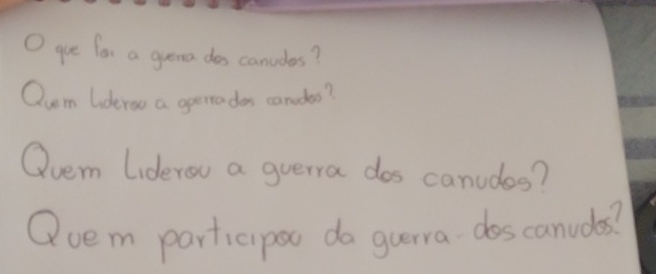 O que foi a guerra dos canudos?
Quem liderou a guerra dos canudos?
Quem Liderou a guerra dos canudos?
Quem participou da guerra dos canudos?